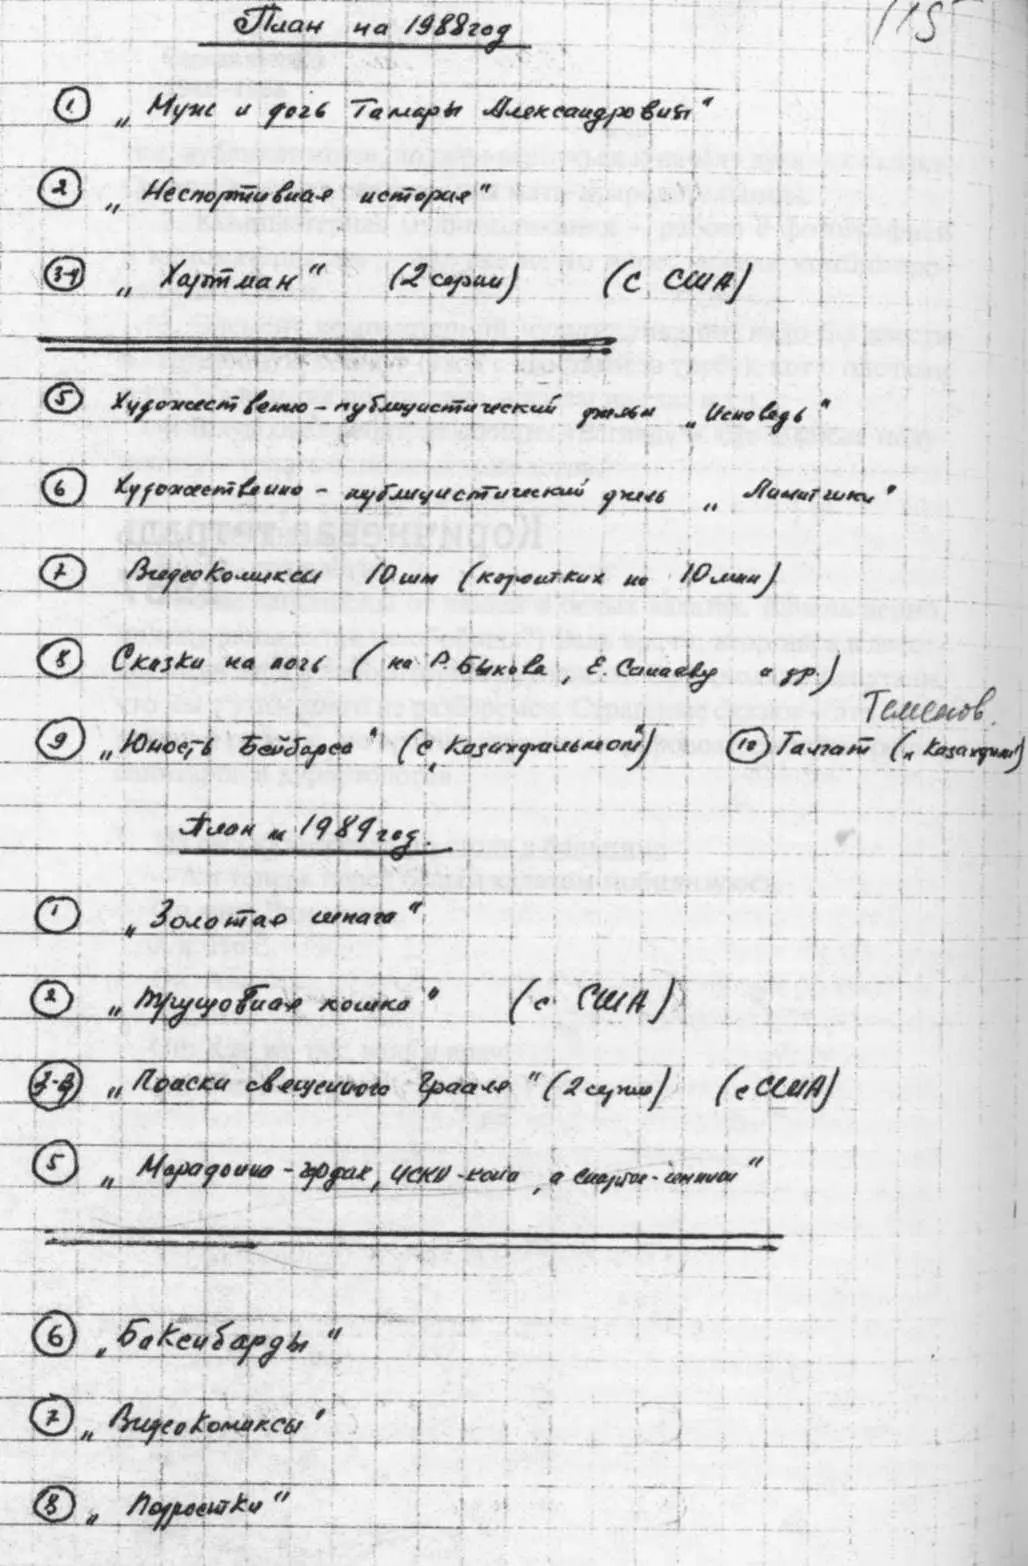 115
План на 1988 год
1 „Муж и дочь Тамары Александровны"
2 „Неспортивная история"
3-4 „Хартман" (2 серии) (с США)
5 Художественно-публицистический фильм „Исповедь"
6 Художественно-публицистический фильм „Лимитчики"
7 Видеокомиксы 10 шт (коротких по 10 мин)
8 Сказки на ночь (на Р. Быкова, Е. Санаеву и др.)
9 „Юность Бейбарса" (с „Казахфильмом") 10 Талгат Теменов. („Казахфильм")
План на 1989 год
1 „Золотая шпага"
2 „Трущобная кошка" (с США)
3-4 „Поиски священного Грааля" (2 серии) (с США)
5 „Марадонна - , а Спартак - чемпион"
6 „Баксибарды"
7 „Видеокомиксы"
8 „Подростки"